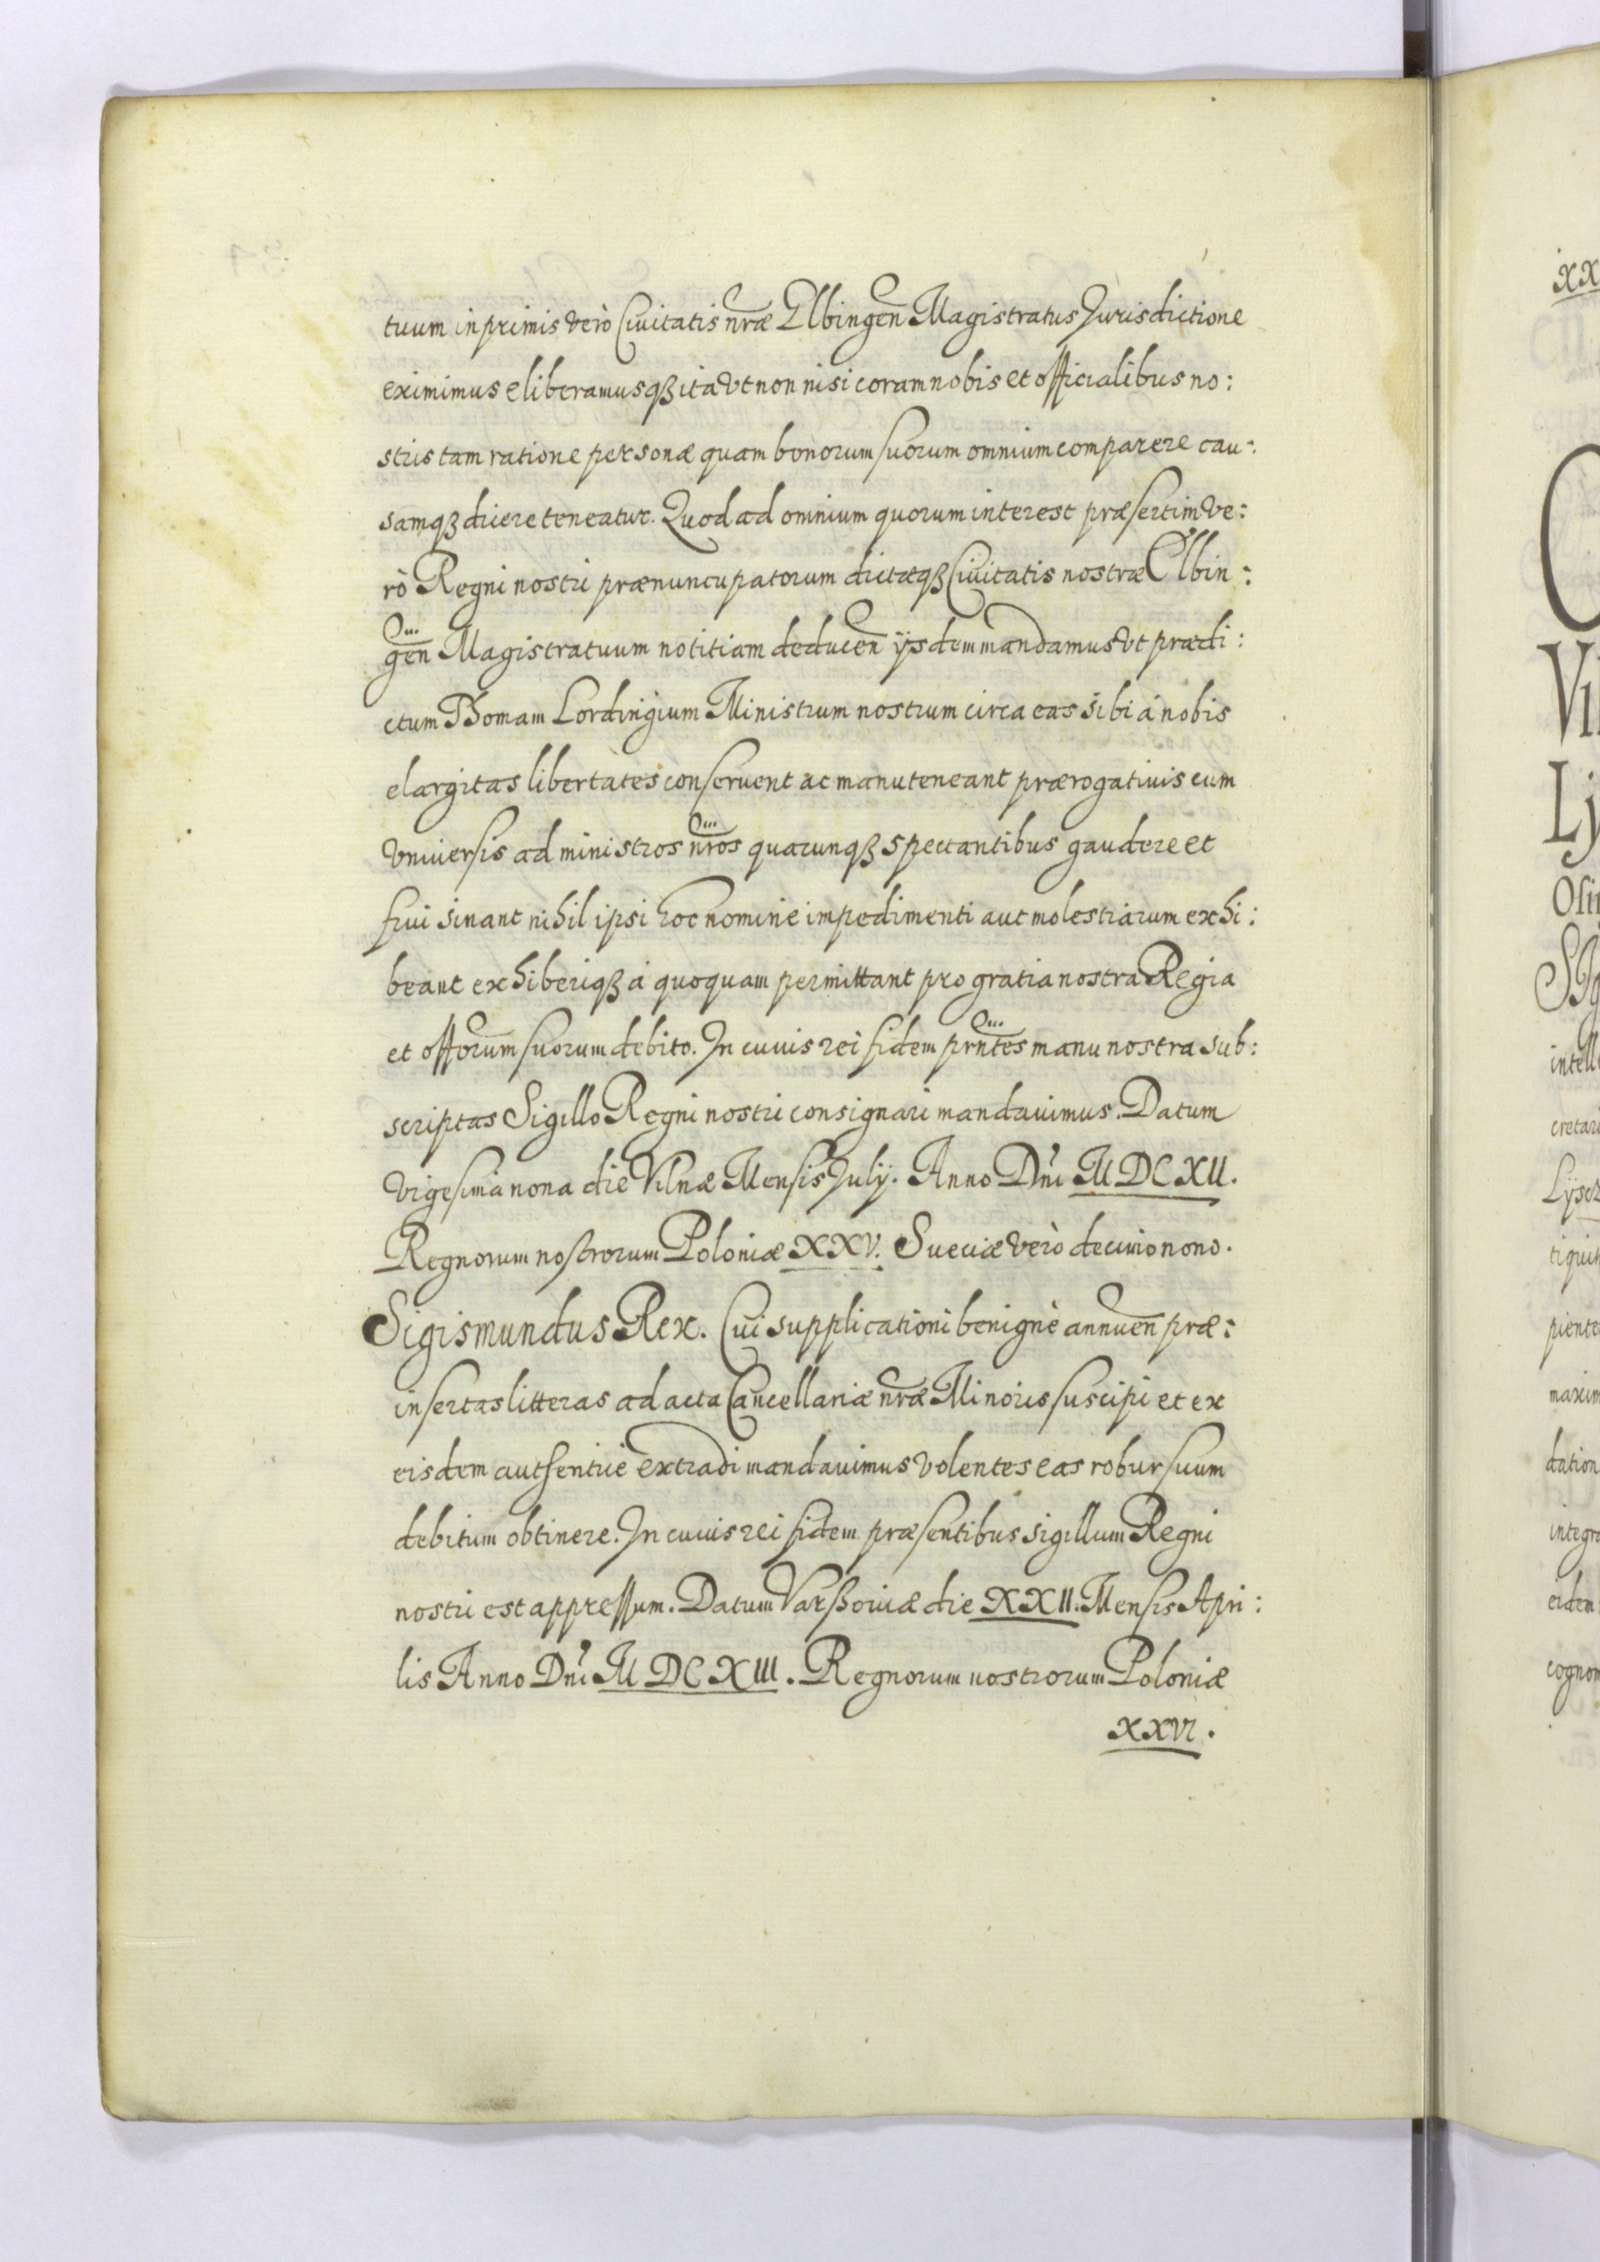 tuum inprimis verò Civitatis nræ Elbingen Magistratus Jurisdictione
eximimus eliberamusqꝫ ita vt non nisi coram nobis et officialibus no:
stris tam ratione personæ quam bonorum suorum omnium comparere cau:
samqꝫ dicere teneatur. Quod ad omnium quorum interest præsertim ve:
rò Regni nostri prænuncupatorum dictæqꝫ Civitatis nostræ Elbin:
gen Magistratuum notitiam deducen ijsdem mandamus vt prædi:
ctum Thomam Lordingium Ministrum nostrum circa eas sibi à nobis
elargitas libertates conservent ac manuteneant prærogativis cum
vniversis ad ministros nros quarunqꝫ spectantibus gaudere et
frui sinant nihil ipsi hoc nomine impedimenti aut molestiarum exhi:
beant exhiberiqꝫ à quoquam permittant pro gratia nostra Regia
et offorum suorum debito. In cuius rei fidem prntes manu nostra sub:
scriptas Sigillo Regni nostri consignari mandauimus. Datum
vigesima nona die Vilnæ Mensis Julij. Anno Dni M DC XII.
Regnorum nostrorum Poloniæ XXV. Sueciæ verò decimo nono.
Sigismundus Rex. Cui supplicationi benignè annuen præ:
insertas litteras ad acta Cancellariæ nræ Minoris suscipi et ex
eisdem authentice extradi mandauimus volentes eas robur suum
debitum obtinere. In cuius rei fidem præsentibus sigillum Regni
nostri est appressum. Datum Varßoviæ die XXII. Mensis Apri:
lis Anno Dni M DC XIII. Regnorum nostrorum Poloniæ
XXVI.